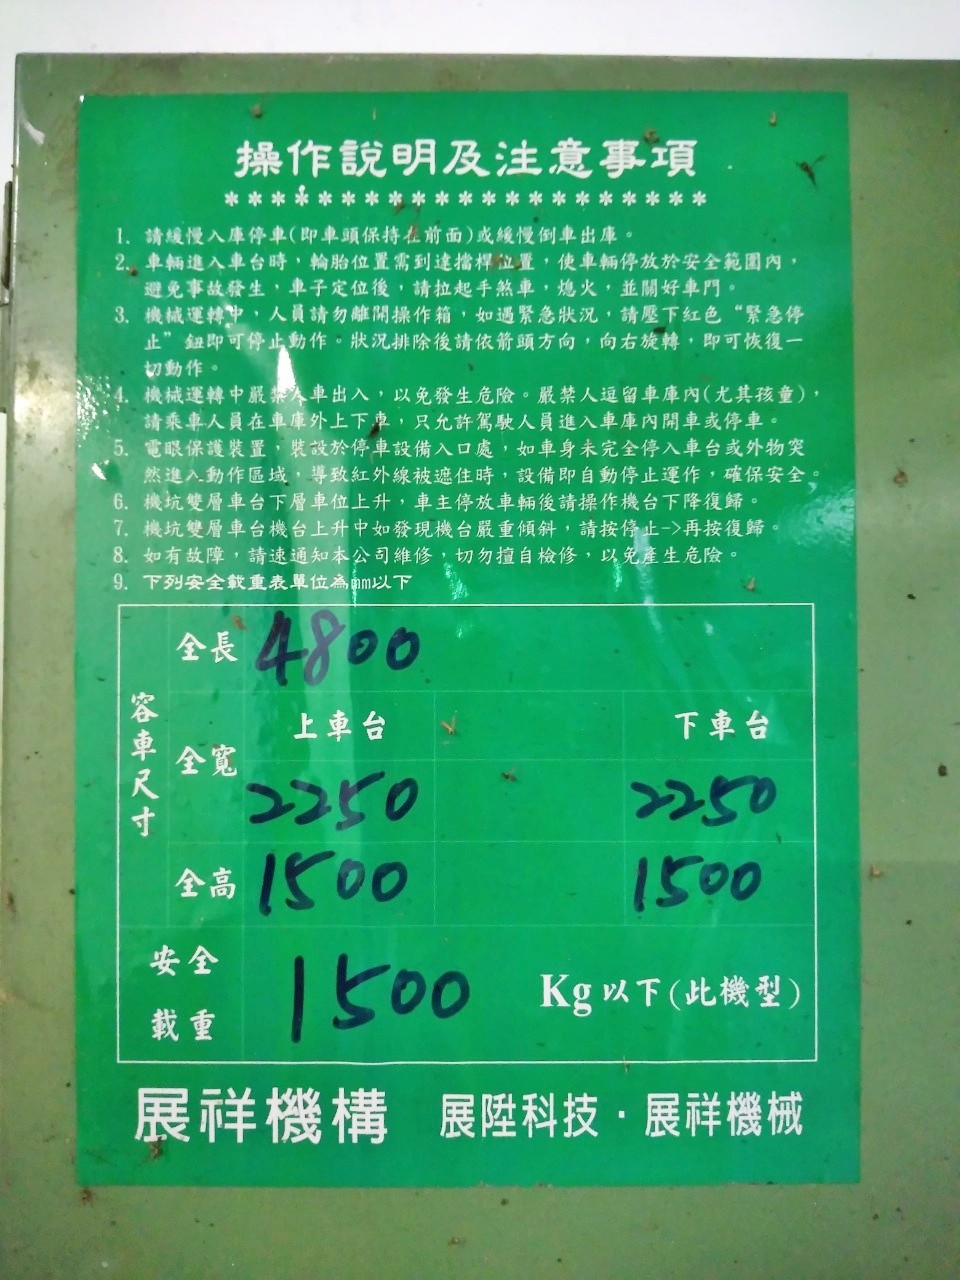 操作說明及注意事項
**************************
1. 請緩慢入庫停車(即車頭保持在前面)或緩慢倒車出庫。
2. 車輛進入車台時，輪胎位置需到達擋桿位置，使車輛停放於安全範圍內，
避免事故發生，車子定位後，請拉起手煞車，熄火，並關好車門。
3. 機械運轉中，人員請勿離開操作箱，如遇緊急狀況，請壓下紅色“緊急停
止”鈕即可停止動作。狀況排除後請依箭頭方向，向右旋轉，即可恢復一
切動作。
4. 機械運轉中嚴禁人車出入，以免發生危險。嚴禁人逗留車庫內(尤其孩童)，
請乘車人員在車庫外上下車，只允許駕駛人員進入車庫內開車或停車。
5. 電眼保護裝置 裝設於停車設備入口處，如車身未完全停入車台或外物突
然進入動作區域，導致紅外線被遮住時，設備即自動停止運作，確保安全。
6. 機坑雙層車台下層車位上升，車主停放車輛後請操作機台下降復歸。
7. 機坑雙層車台機台上升中如發現機台嚴重傾斜，請按停止->再按復歸。
8. 如有故障，請速通知本公司維修，切勿擅自檢修，以免產生危險。
9. 下列安全載重表單位為mm以下
容車尺寸
全長 4800
全寬 上車台 下車台
2250 2250
全高 1500 1500
安全載重 1500 Kg以下(此機型)
展祥機構 展陞科技·展祥機械